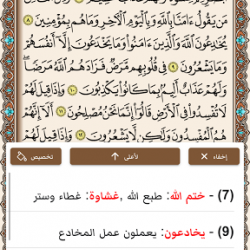 مَن يَقُولُ ءَامَنَّا بِٱللَّهِ وَبِٱلْيَوْمِ ٱلْءَاخِرِ وَمَا هُم بِمُؤْمِنِينَ ٨
يُخَٰدِعُونَ ٱللَّهَ وَٱلَّذِينَ ءَامَنُوا۟ وَمَا يَخْدَعُونَ إِلَّآ أَنفُسَهُمْ
وَمَا يَشْعُرُونَ ٩ فِى قُلُوبِهِم مَّرَضٌ فَزَادَهُمُ ٱللَّهُ مَرَضًا ۖ
وَلَهُمْ عَذَابٌ أَلِيمٌۢ بِمَا كَانُوا۟ يَكْذِبُونَ ١٠ وَإِذَا قِيلَ لَهُمْ
لَا تُفْسِدُوا۟ فِى ٱلْأَرْضِ قَالُوٓا۟ إِنَّمَا نَحْنُ مُصْلِحُونَ ١١ أَلَآ إِنَّهُمْ
هُمُ ٱلْمُفْسِدُونَ وَلَٰكِن لَّا يَشْعُرُونَ ١٢ وَإِذَا قِيلَ لَهُمْ
إخفاء لأعلى تخصيص
(7) - ختم الله: طبع الله ,غشاوة: غطاء وستر
(9) - يخادعون: يعملون عمل المخادع